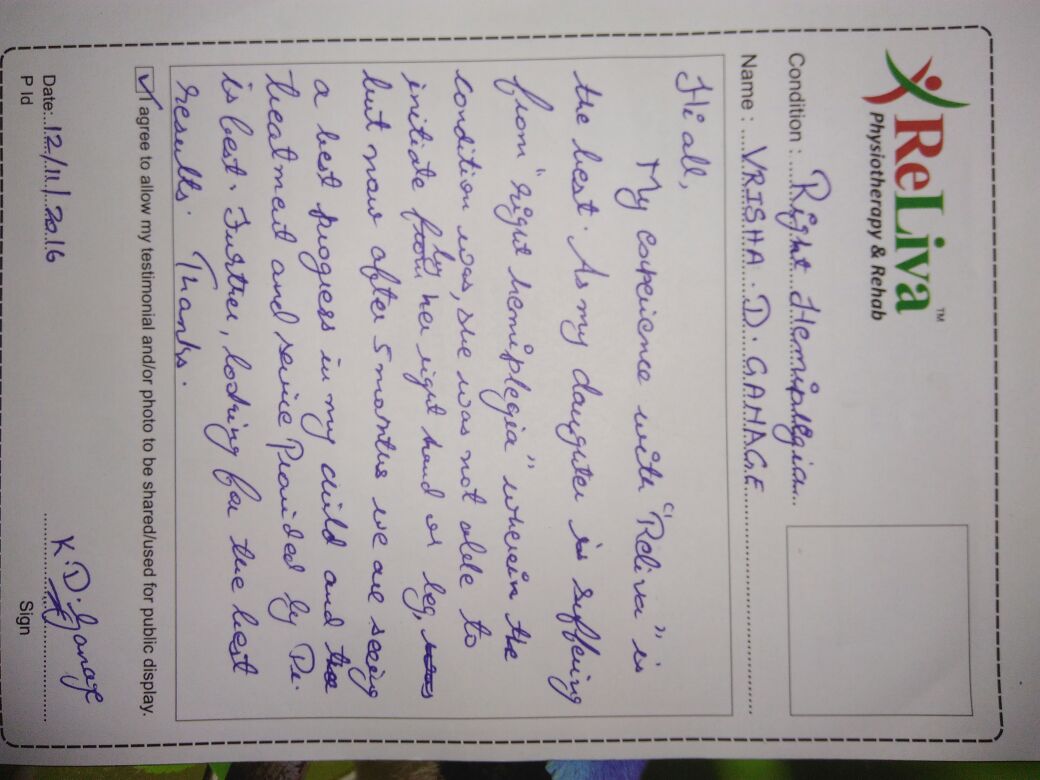 ReLiva™
Physiotherapy & Rehab
Condition : Right Hemiplegia
Name : VRISHA . D . GANAGE
Hi all,
My experience with "Reliva" is
the best. As my daughter is suffering
from "right hemiplegia" wherein the
condition was, she was not able to
initiate by her right hand or leg,
but now after 5 months we are seeing
a best progress in my child and
treatment and service Provided by Dr.
is best. Further, looking for the best
results. Thanks.
I agree to allow my testimonial and/or photo to be shared/used for public display.
Date: 12/11/2016
P Id
K.D. Ganage
Sign